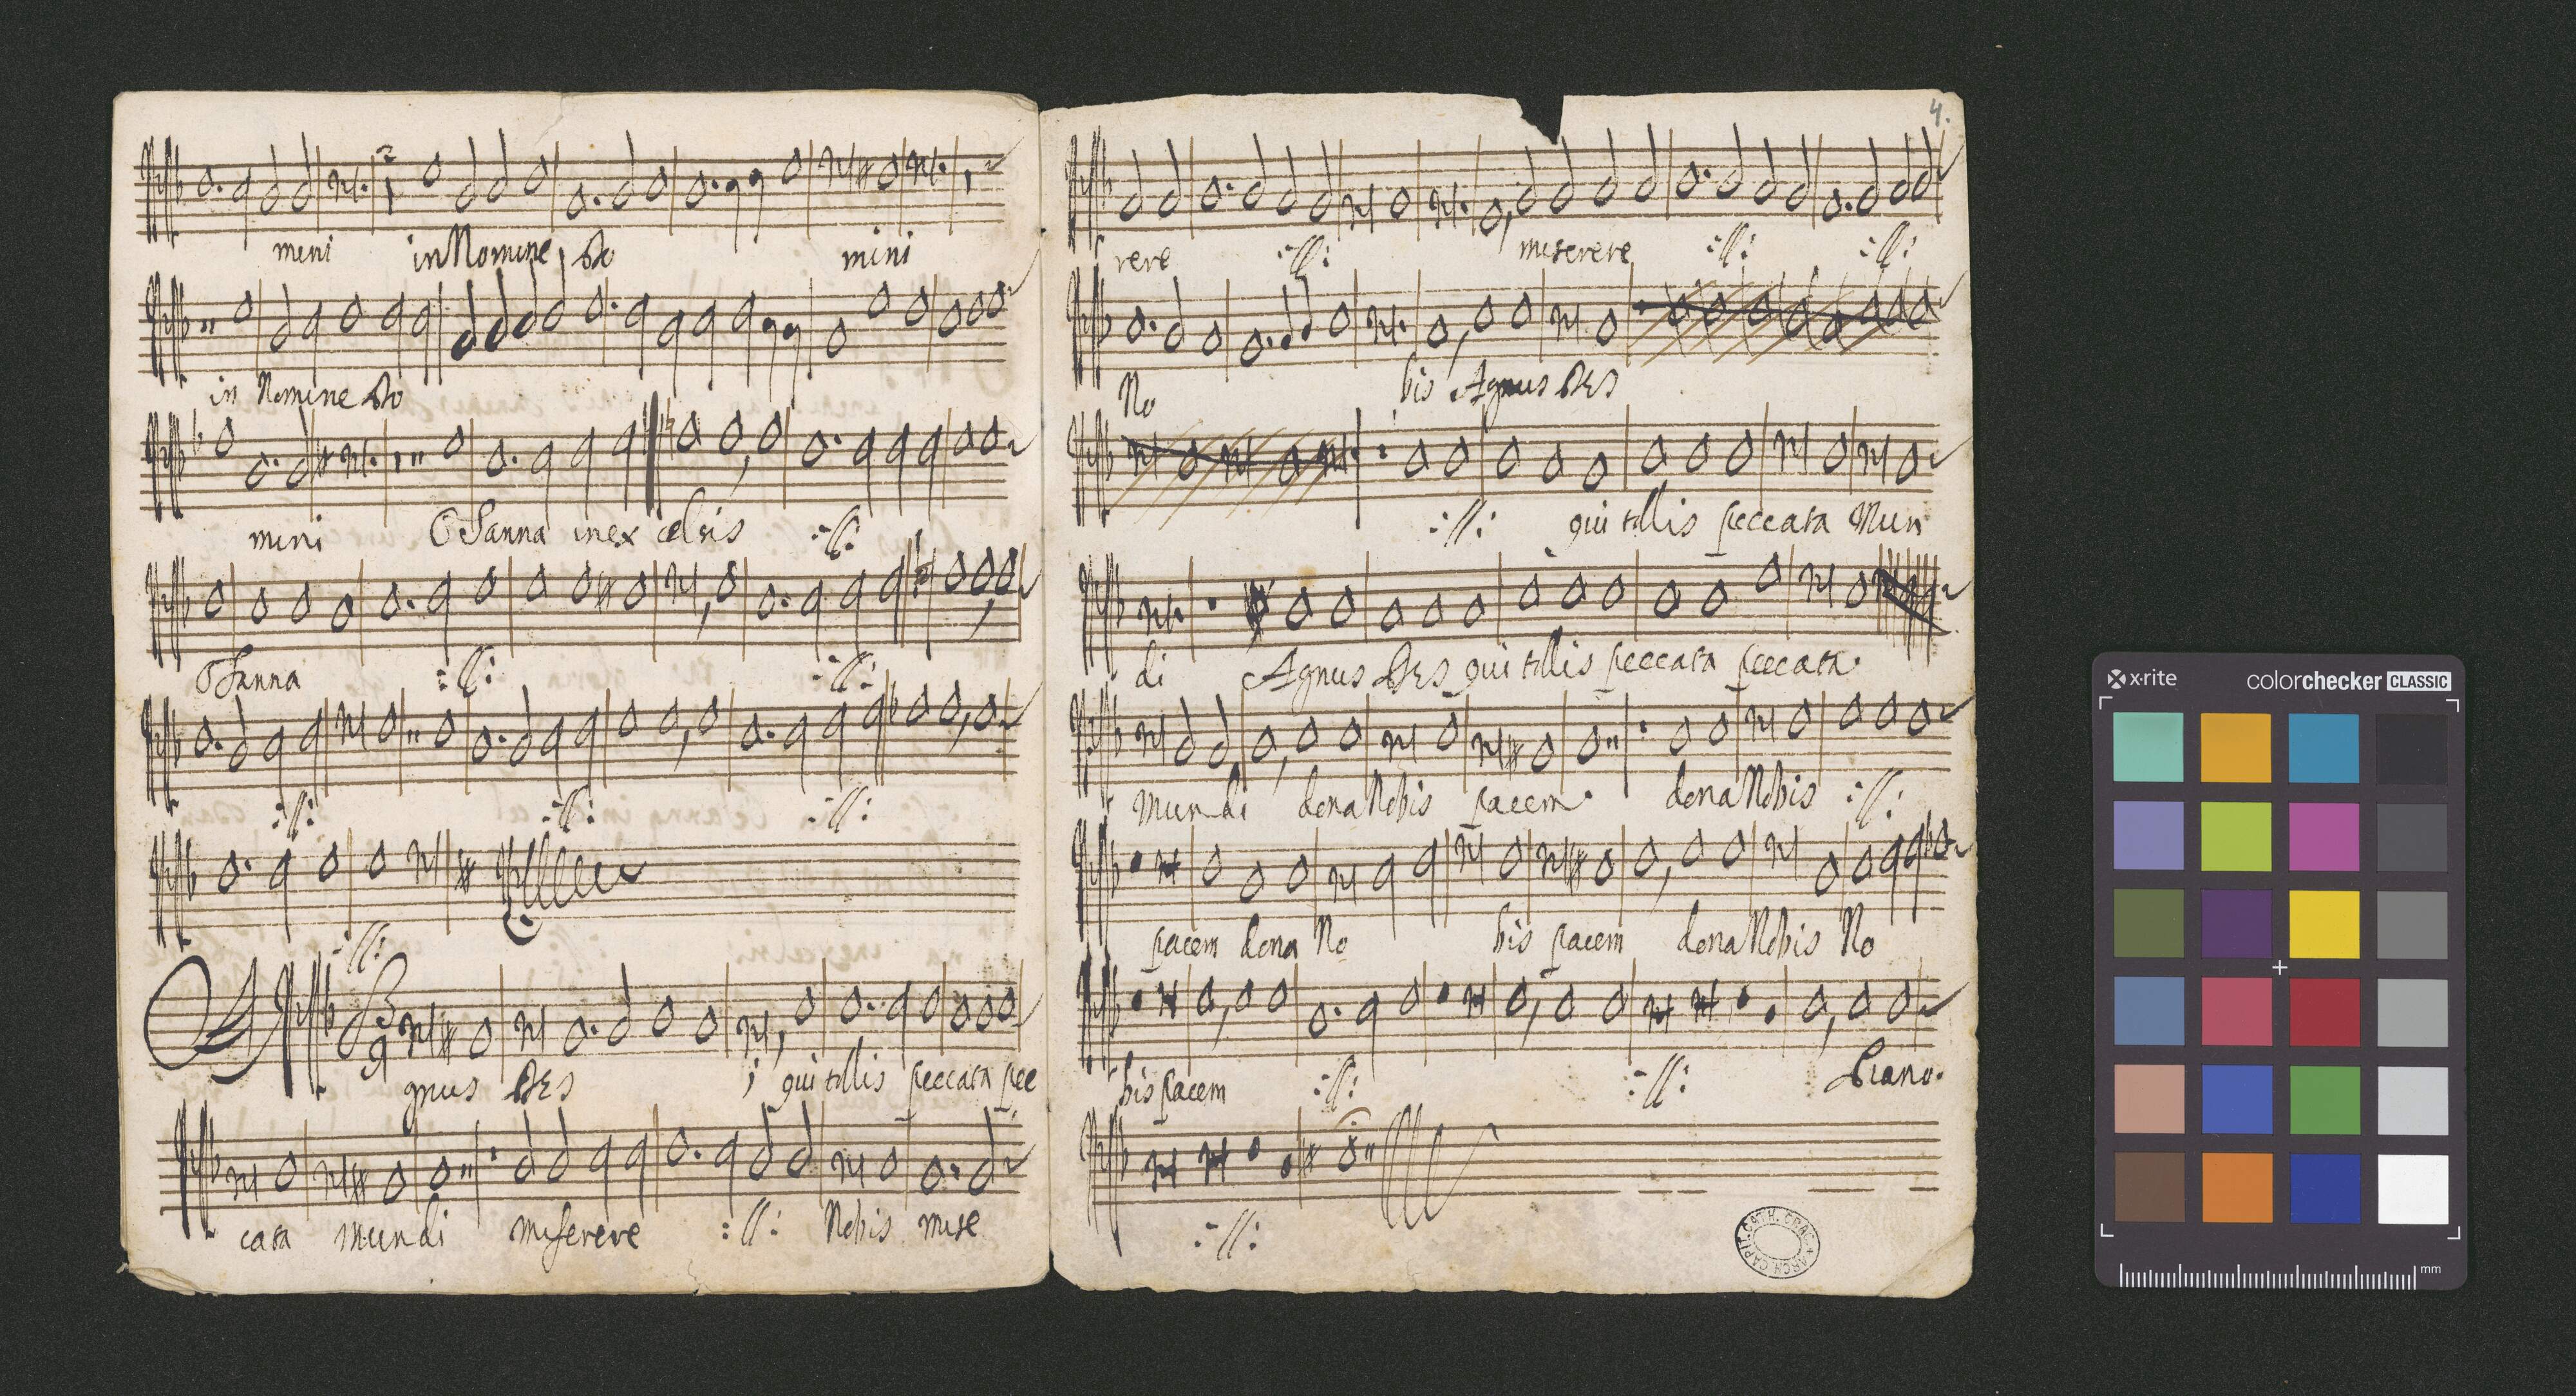 mini in Nomine Do mini
in Nomine Do
mini O Sanna in ex celsis :||:
O Sanna :||: :||:
:||: :||: :||:
:||:
A 3
gnus DEs ; qui tollis peccata pec
cata mundi miserere :||: Nobis mise
4.
rere :||: miserere :||: :||:
No bis Agnus DEs
:||: qui tollis peccata Mun
di Agnus DEs qui tollis peccata peccata.
Mundi dona Nobis pacem. dona Nobis :||:
pacem dona No bis pacem dona Nobis No
bis pacem :||: :||: Piano.
:||:
ARCH. CAPIT. CATH. CRAC.
x·rite colorchecker CLASSIC
mm